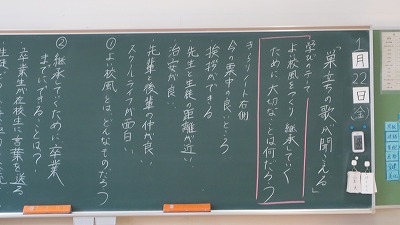 1月22日(金)
「巣立ちの歌が聞こえる」
学びのテーマ
よい校風をつくり継承していく
ために大切なことは何だろう
きらりノート右側
今の栗中の良いところ
挨拶ができる
先生と生徒の距離が近い
治安が良い
先輩と後輩の仲が良い
スクールライフが面白
①よい校風とはどんなものだろう
②継承してくために、卒業
までにできることは?
卒業生が在校生に言葉を送る